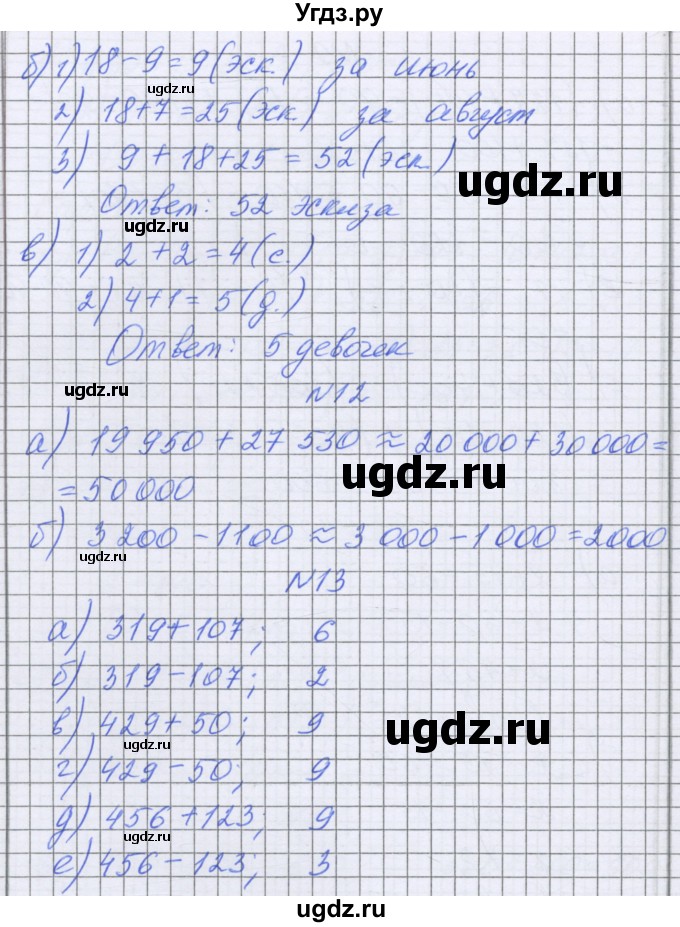 Угдз.ру
б) 1) 18 - 9 = 9 (эск.) за июнь
ugdz.ru
2) 18 + 7 = 25 (эск.) за август
3) 9 + 18 + 25 = 52 (эск.)
ugdz.ru
Ответ: 52 эскиза
ugdz.ru
в) 1) 2 + 2 = 4 (с.)
2) 4 + 1 = 5 (д.)
Ответ: 5 девочек
ugdz.ru
№12
а) 19 950 + 27 530 ≈ 20 000 + 30 000 =
= 50 000
ugdz.ru
б) 3 200 - 1100 ≈ 3 000 - 1 000 = 2000
ugdz.ru
№13
а) 319 + 107; 6
б) 319 - 107; 2
в) 429 + 50; 9
ugdz.ru
ugdz.ru
г) 429 - 50; 9
д) 456 + 123; 9
ugdz.ru
е) 456 - 123; 3
ugdz.ru